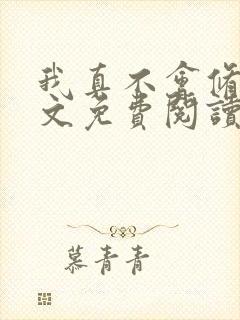 我真不會修
文免費閱讀
慕青青